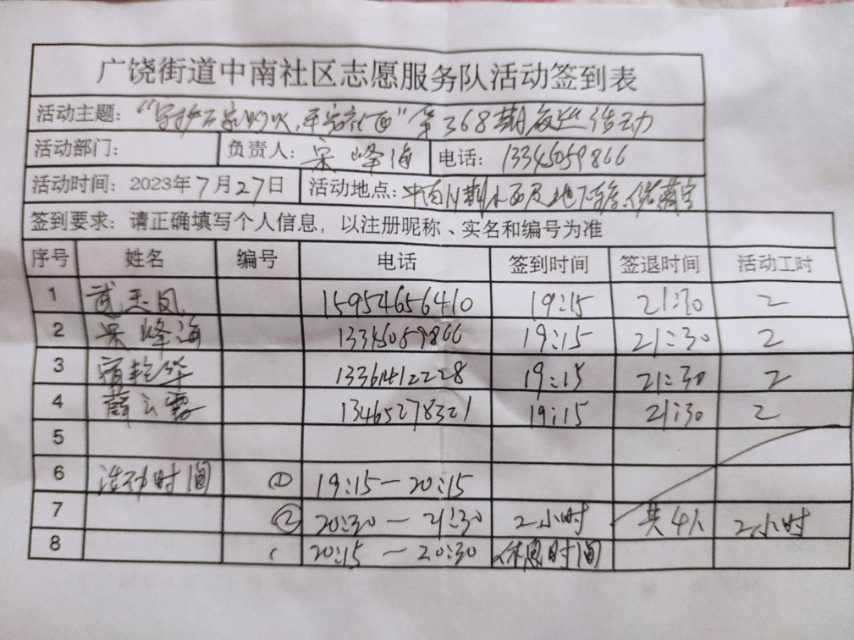 广饶街道中南社区志愿服务队活动签到表
活动主题：“守护万家灯火，平安社区”第368期夜巡活动
活动部门： 负责人：吴峰海 电话：13345059866
活动时间：2023年7月27日 活动地点：中南
签到要求：请正确填写个人信息，以注册昵称、实名和编号为准
序号 姓名 编号 电话 签到时间 签退时间 活动工时
1 武玉凤 15954656410 19:15 21:30 2
2 吴峰海 13345059866 19:15 21:30 2
3 19:15 21:30 2
4 薛云霞 13465278321 19:15 21:30 2
5
6 活动时间 ① 19:15—20:15
7 ② 20:30—21:30 2小时 共4人 2小时
8 20:15—20:30 休息时间